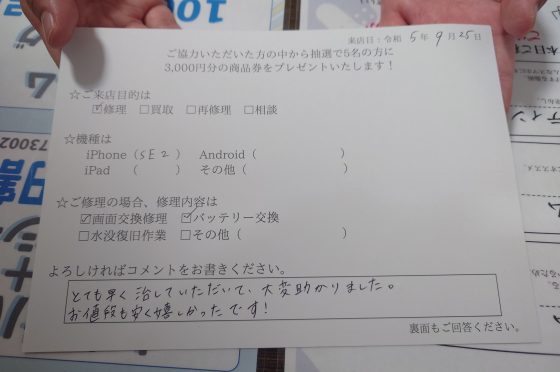 来店日：令和 5年 9月25日
ご協力いただいた方の中から抽選で5名の方に
3,000円分の商品券をプレゼントいたします！
☆ご来店目的は
☑修理 □買取 □再修理 □相談
☆機種は
iPhone（SE2） Android（ ）
iPad （ ） その他（ ）
☆ご修理の場合、修理内容は
☑画面交換修理 ☑バッテリー交換
□水没復旧作業 □その他（ ）
よろしければコメントをお書きください。
とても早く治していただいて、大変助かりました。
お値段も安く嬉しかったです！
裏面もご回答ください。
100
73002